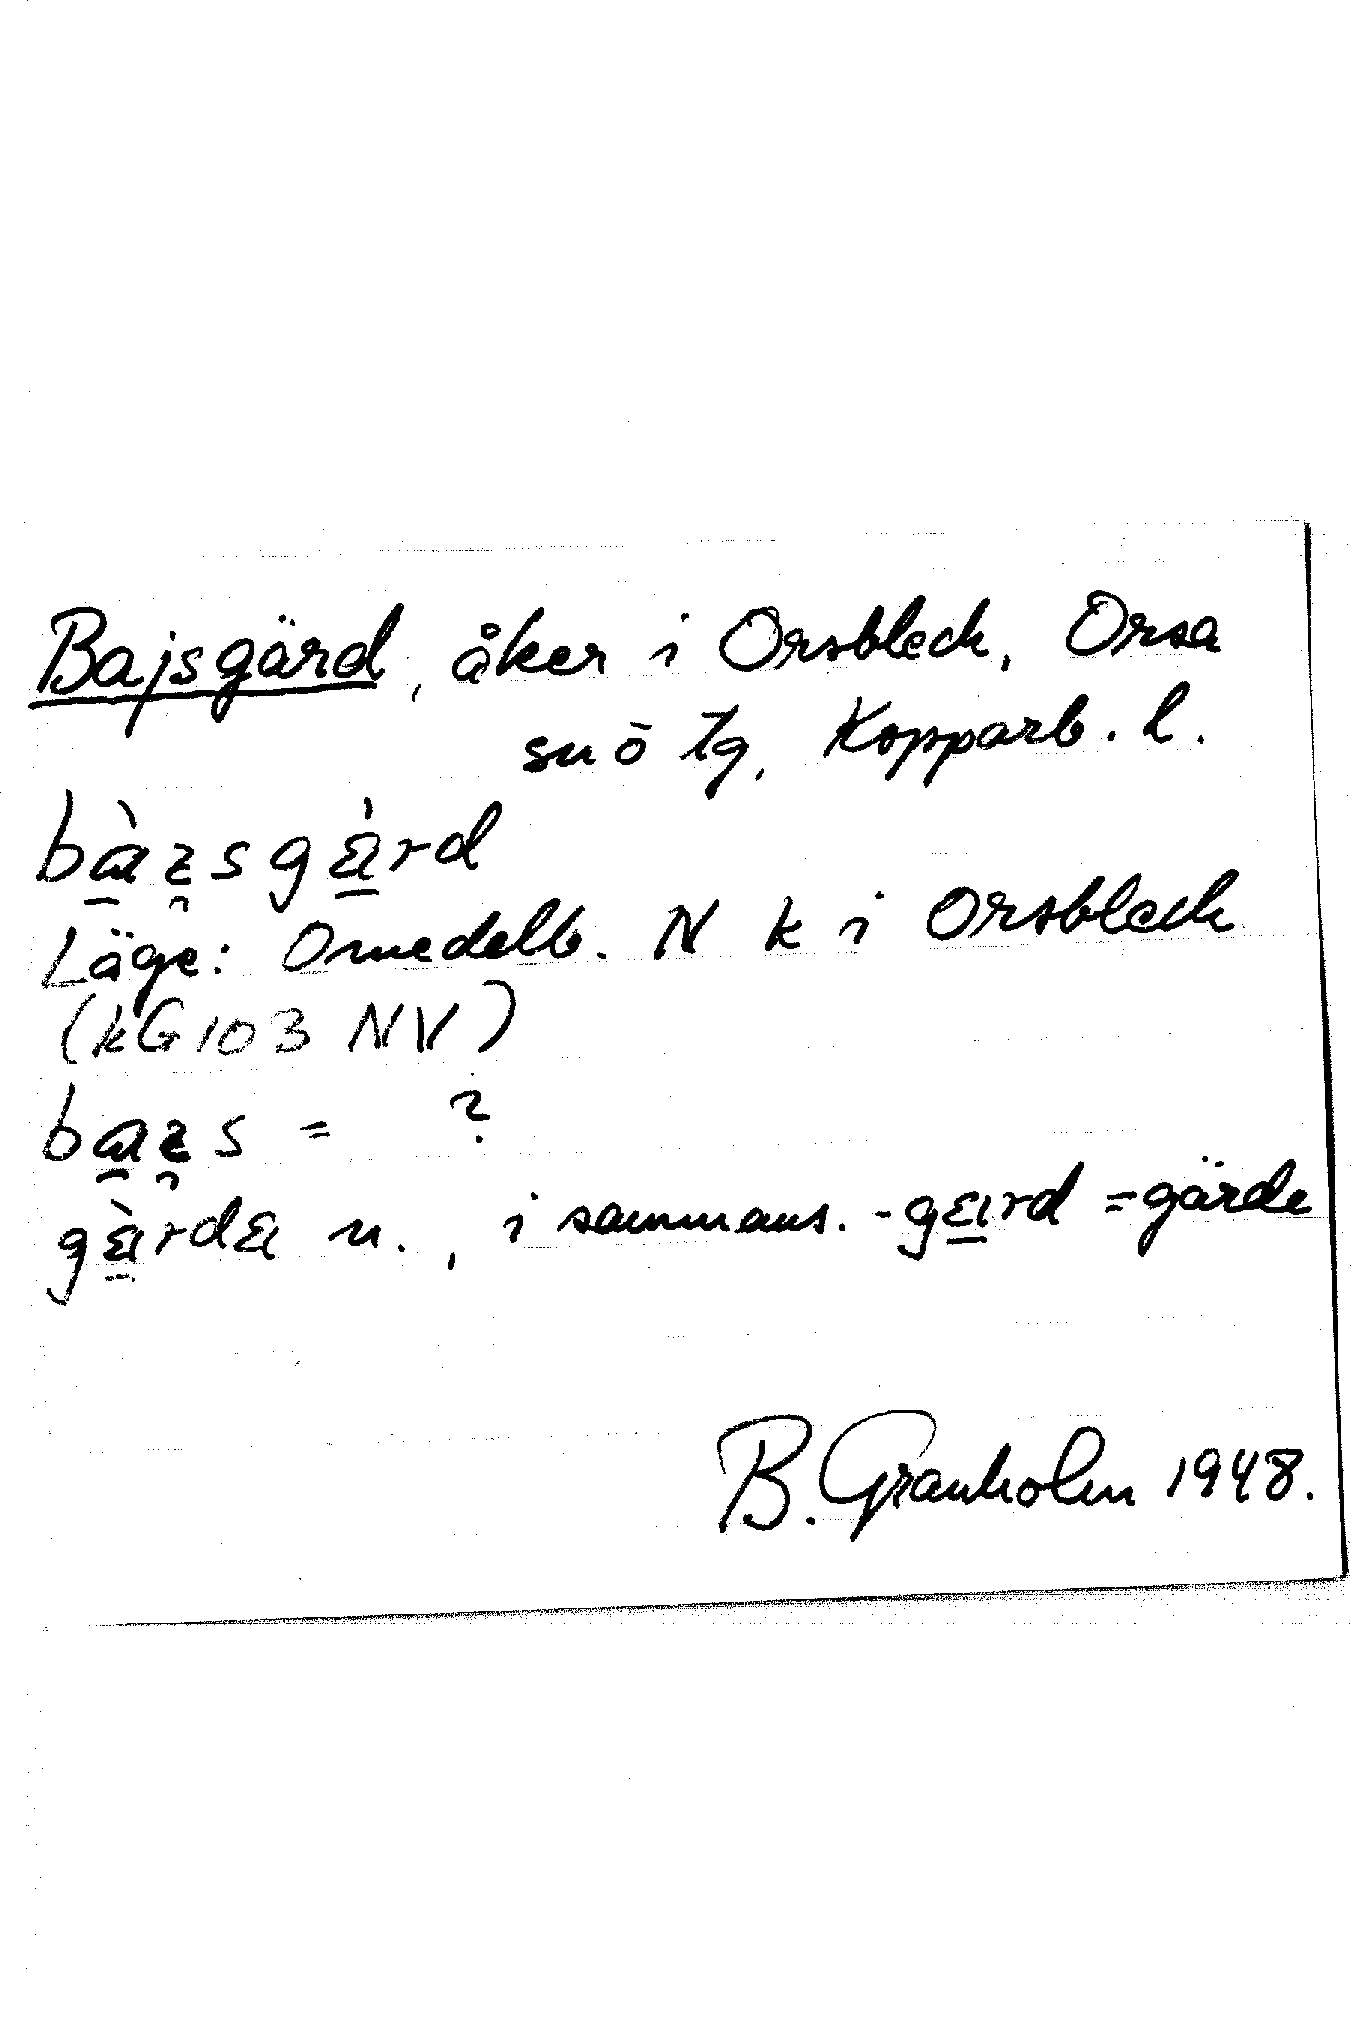 Bajsgärd, åker i Orsbleck, Orsa
sn ō tg, Kopparb. l.
bàı̯sgä̀rd
Läge: Omedelb. N k i Orsbleck
(kG103 NV)
baı̯s = ?
gä̀rdä n., i sammans. -gärd = gärde
B. Granholm 1948.